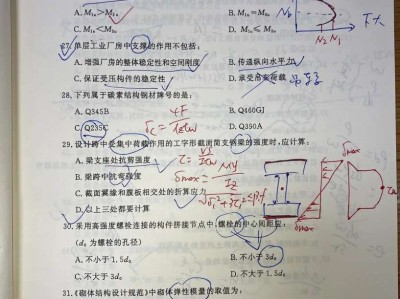 A. M₁ₙ>M₁ₙ B. M₁ₙ=M₈ₙ
C. M₁ₙ<M₈ₙ D. M₁ₙ≤M₈ₙ
27. 单层工业厂房中支撑的作用不包括:
A. 增强厂房的整体稳定性和空间刚度 B. 传递纵向水平力
C. 保证受压构件的稳定性 D. 承受吊车荷载
28. 下列属于碳素结构钢材牌号的是:
A. Q345B B. Q460GJ
C. Q235C D. Q390A
29. 设计跨中受集中荷载作用的工字形截面简支钢梁的强度时,应计算:
A. 梁支座处抗剪强度
B. 梁跨中抗弯强度
C. 截面翼缘和腹板相交处的折算应力
D. 以上三处都要计算
30. 采用高强度螺栓连接的构件拼接节点中,螺栓的中心间距应:
(d₀ 为螺栓的孔径)
A. 不小于 1.5d₀ B. 不小于 3d₀
C. 不大于 3d₀ D. 不大于 1.5d₀
31. 《砌体结构设计规范》中砌体弹性模量的取值为:
N₂ N₁
σmax